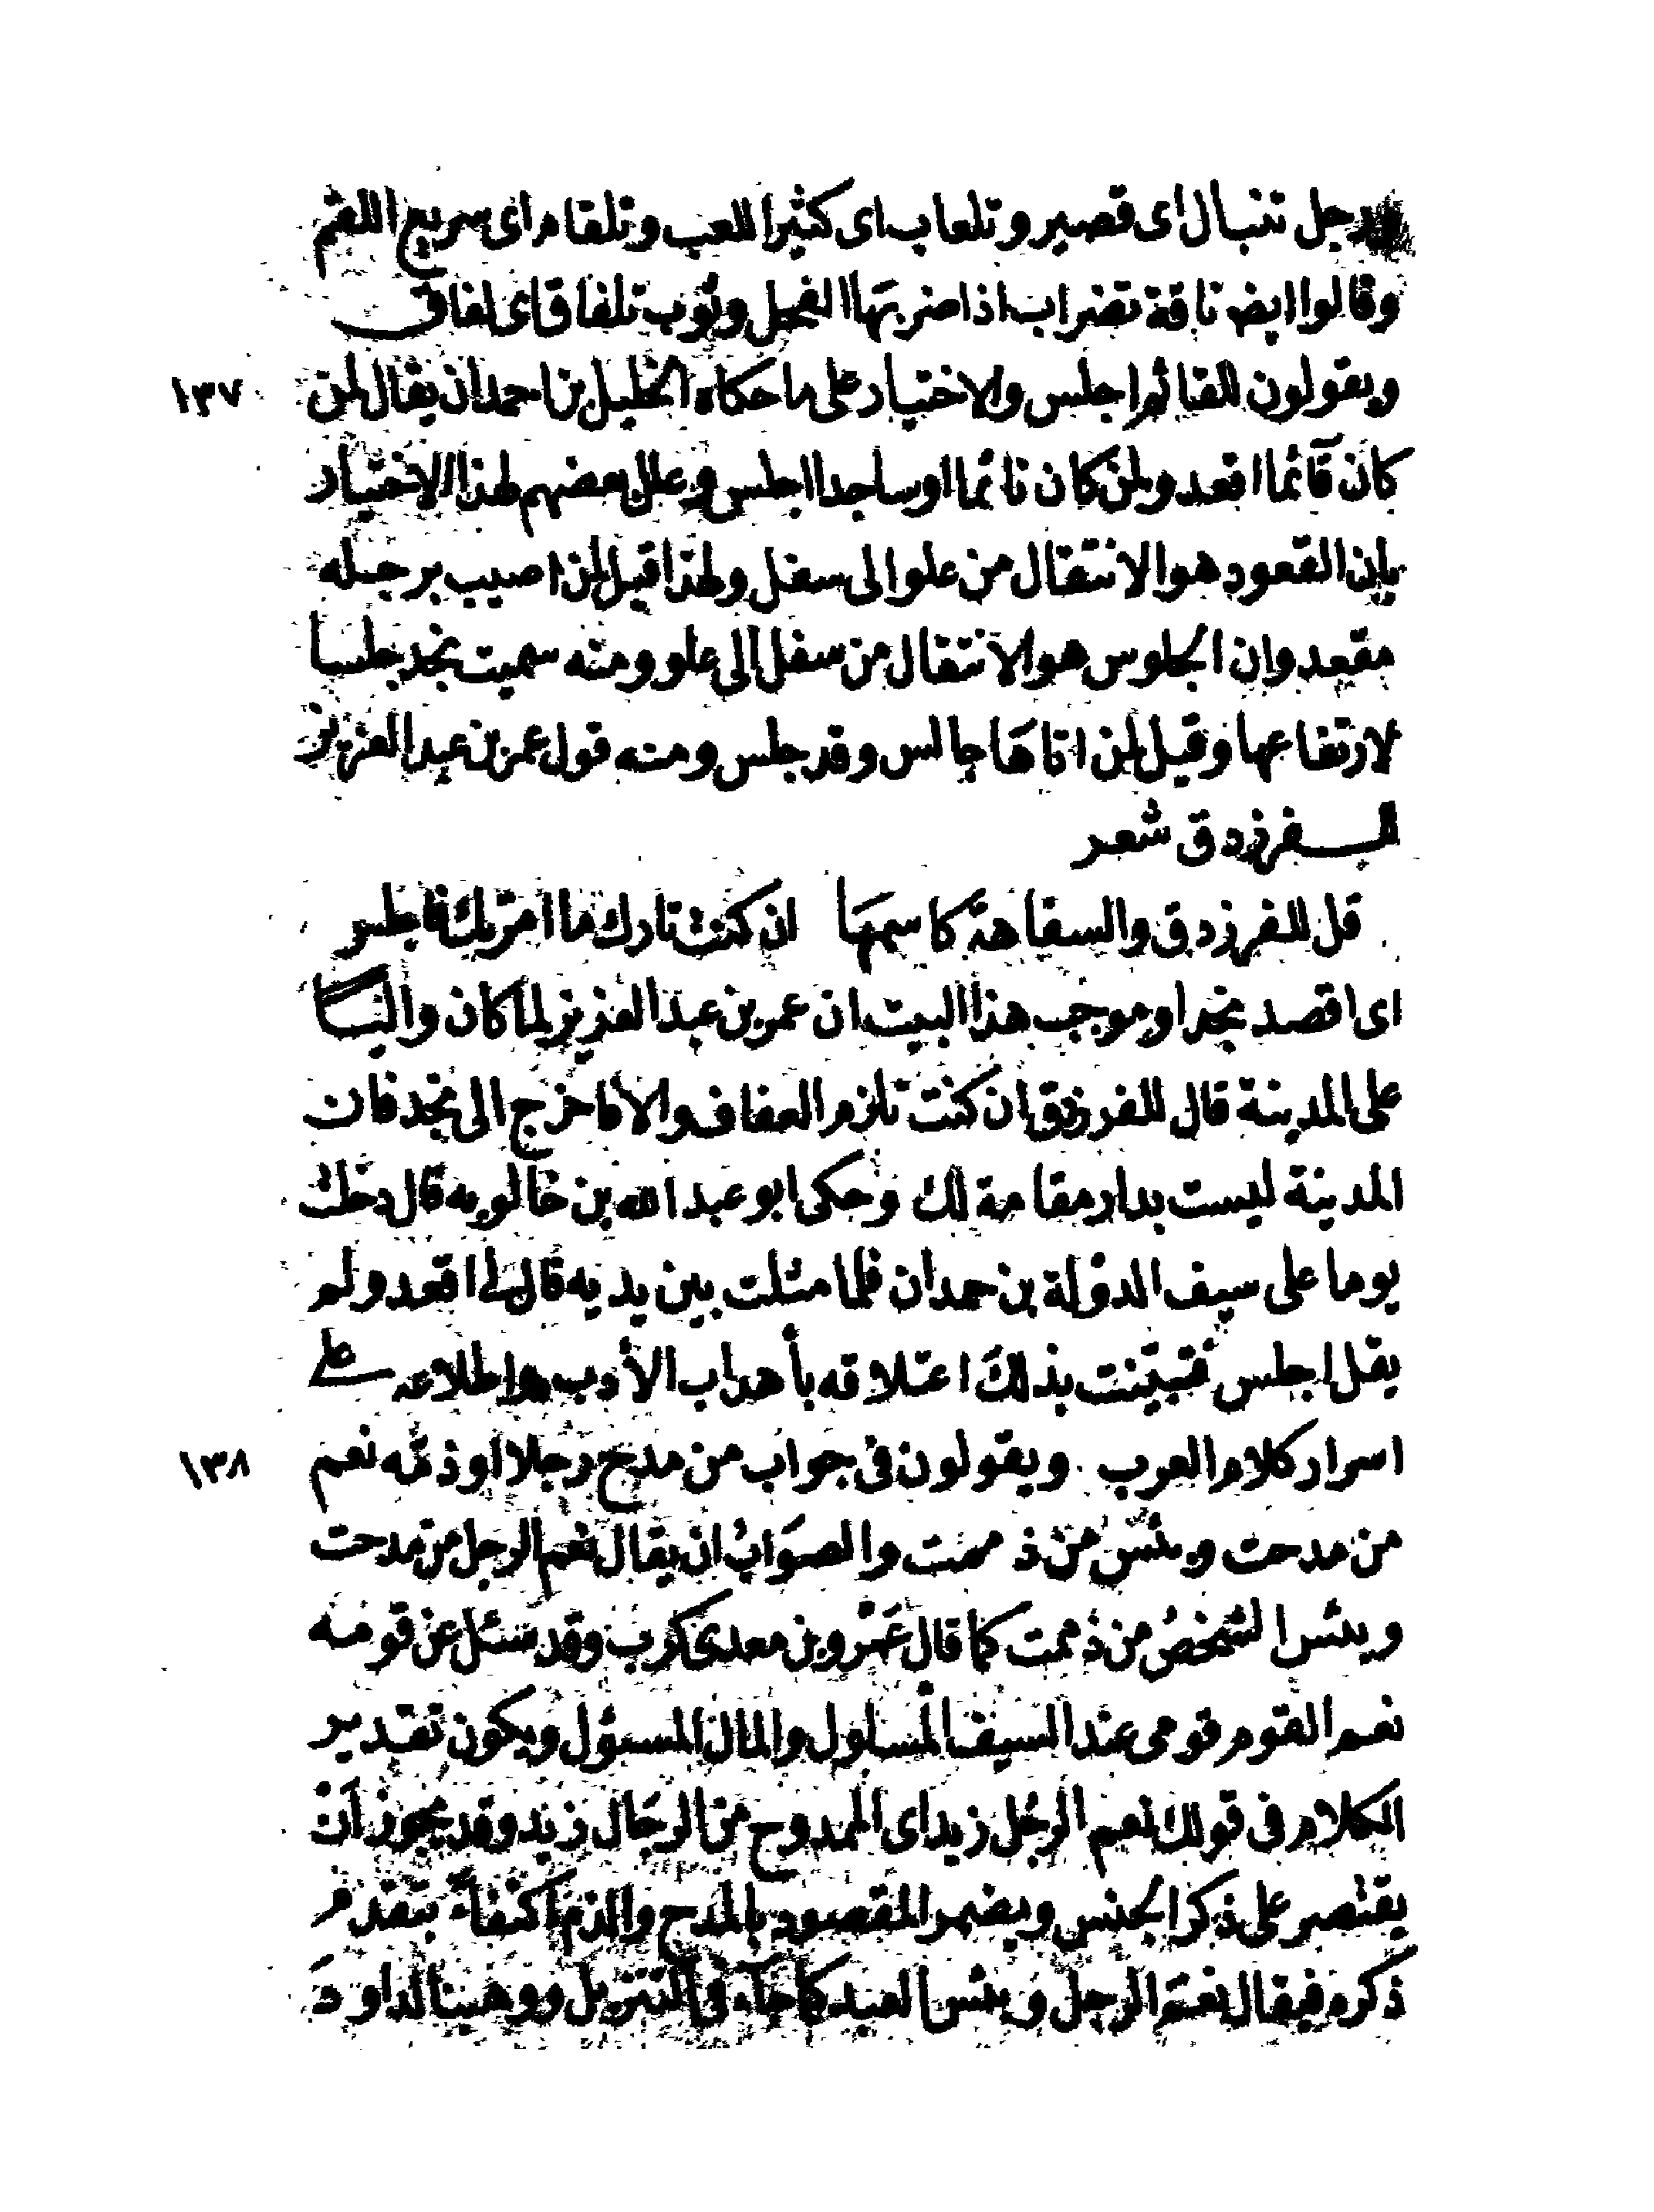 ورجل تنبال اى قصير وتلعاب اى كثير اللعب وتلقام اى سريع اللقم
وقالوا ايض ناقة تضراب اذا ضربها الفحل وثوب تلفاق اى لفاق
ويقولون للقائم اجلس والاختيار على ما حكاه الخليل بن احمد ان يقال لمن ١٣٧
كان قآئما اقعد ولمن كان نائما او ساجدا اجلس وعلل بعضهم لهذا الاختيار
بان القعود هو الانتقال من علو الى سفل ولهذا قيل لمن اصيب برجله
مقعد وان الجلوس هو الانتقال من سفل الى علو ومنه سميت نجد جلسا
لارتفاعها وقيل لمن اتاها جالس وقد جلس ومنه قول عمر بن عبد العزيز
للفرزدق شعر
قل للفرزدق والسفاهة كاسمها ان كنت تارك ما امرتك فاجلس
اى اقصد نجدا وموجب هذا البيت ان عمر بن عبد العزيز لما كان واليا
على المدينة قال للفرزدق ان كنت تلزم العفاف والا فاخرج الى نجد فان
المدينة ليست بدار مقامة لك وحكى ابو عبد الله بن خالويه قال دخلت
يوما على سيف الدولة بن حمدان فلما مثلت بين يديه قال لى اقعد ولم
يقل اجلس فتبيّنت بذلك اعتلاقه بأهداب الأدب واطلاعه على
اسرار كلام العرب ويقولون فى جواب من مدح رجلا او ذمّه نعم ١٣٨
من مدحت وبئس من ذممت والصواب ان يقال نعم الرجل من مدحت
وبئس الشخص من ذممت كما قال عمرو بن معدى كرب وقد سئل عن قومه
نعم القوم قومى عند السيف المسلول والمال المسئول ويكون تقدير
الكلام فى قولك نعم الرجل زيد اى الممدوح من الرجال زيد وقد يجوز ان
يقتصر على ذكر الجنس ويضمر المقصود بالمدح والذم اكتفاء بتقدم
ذكره فيقال نعم الرجل وبئس العبد كما جآء فى التنزيل ووهبنا لداود